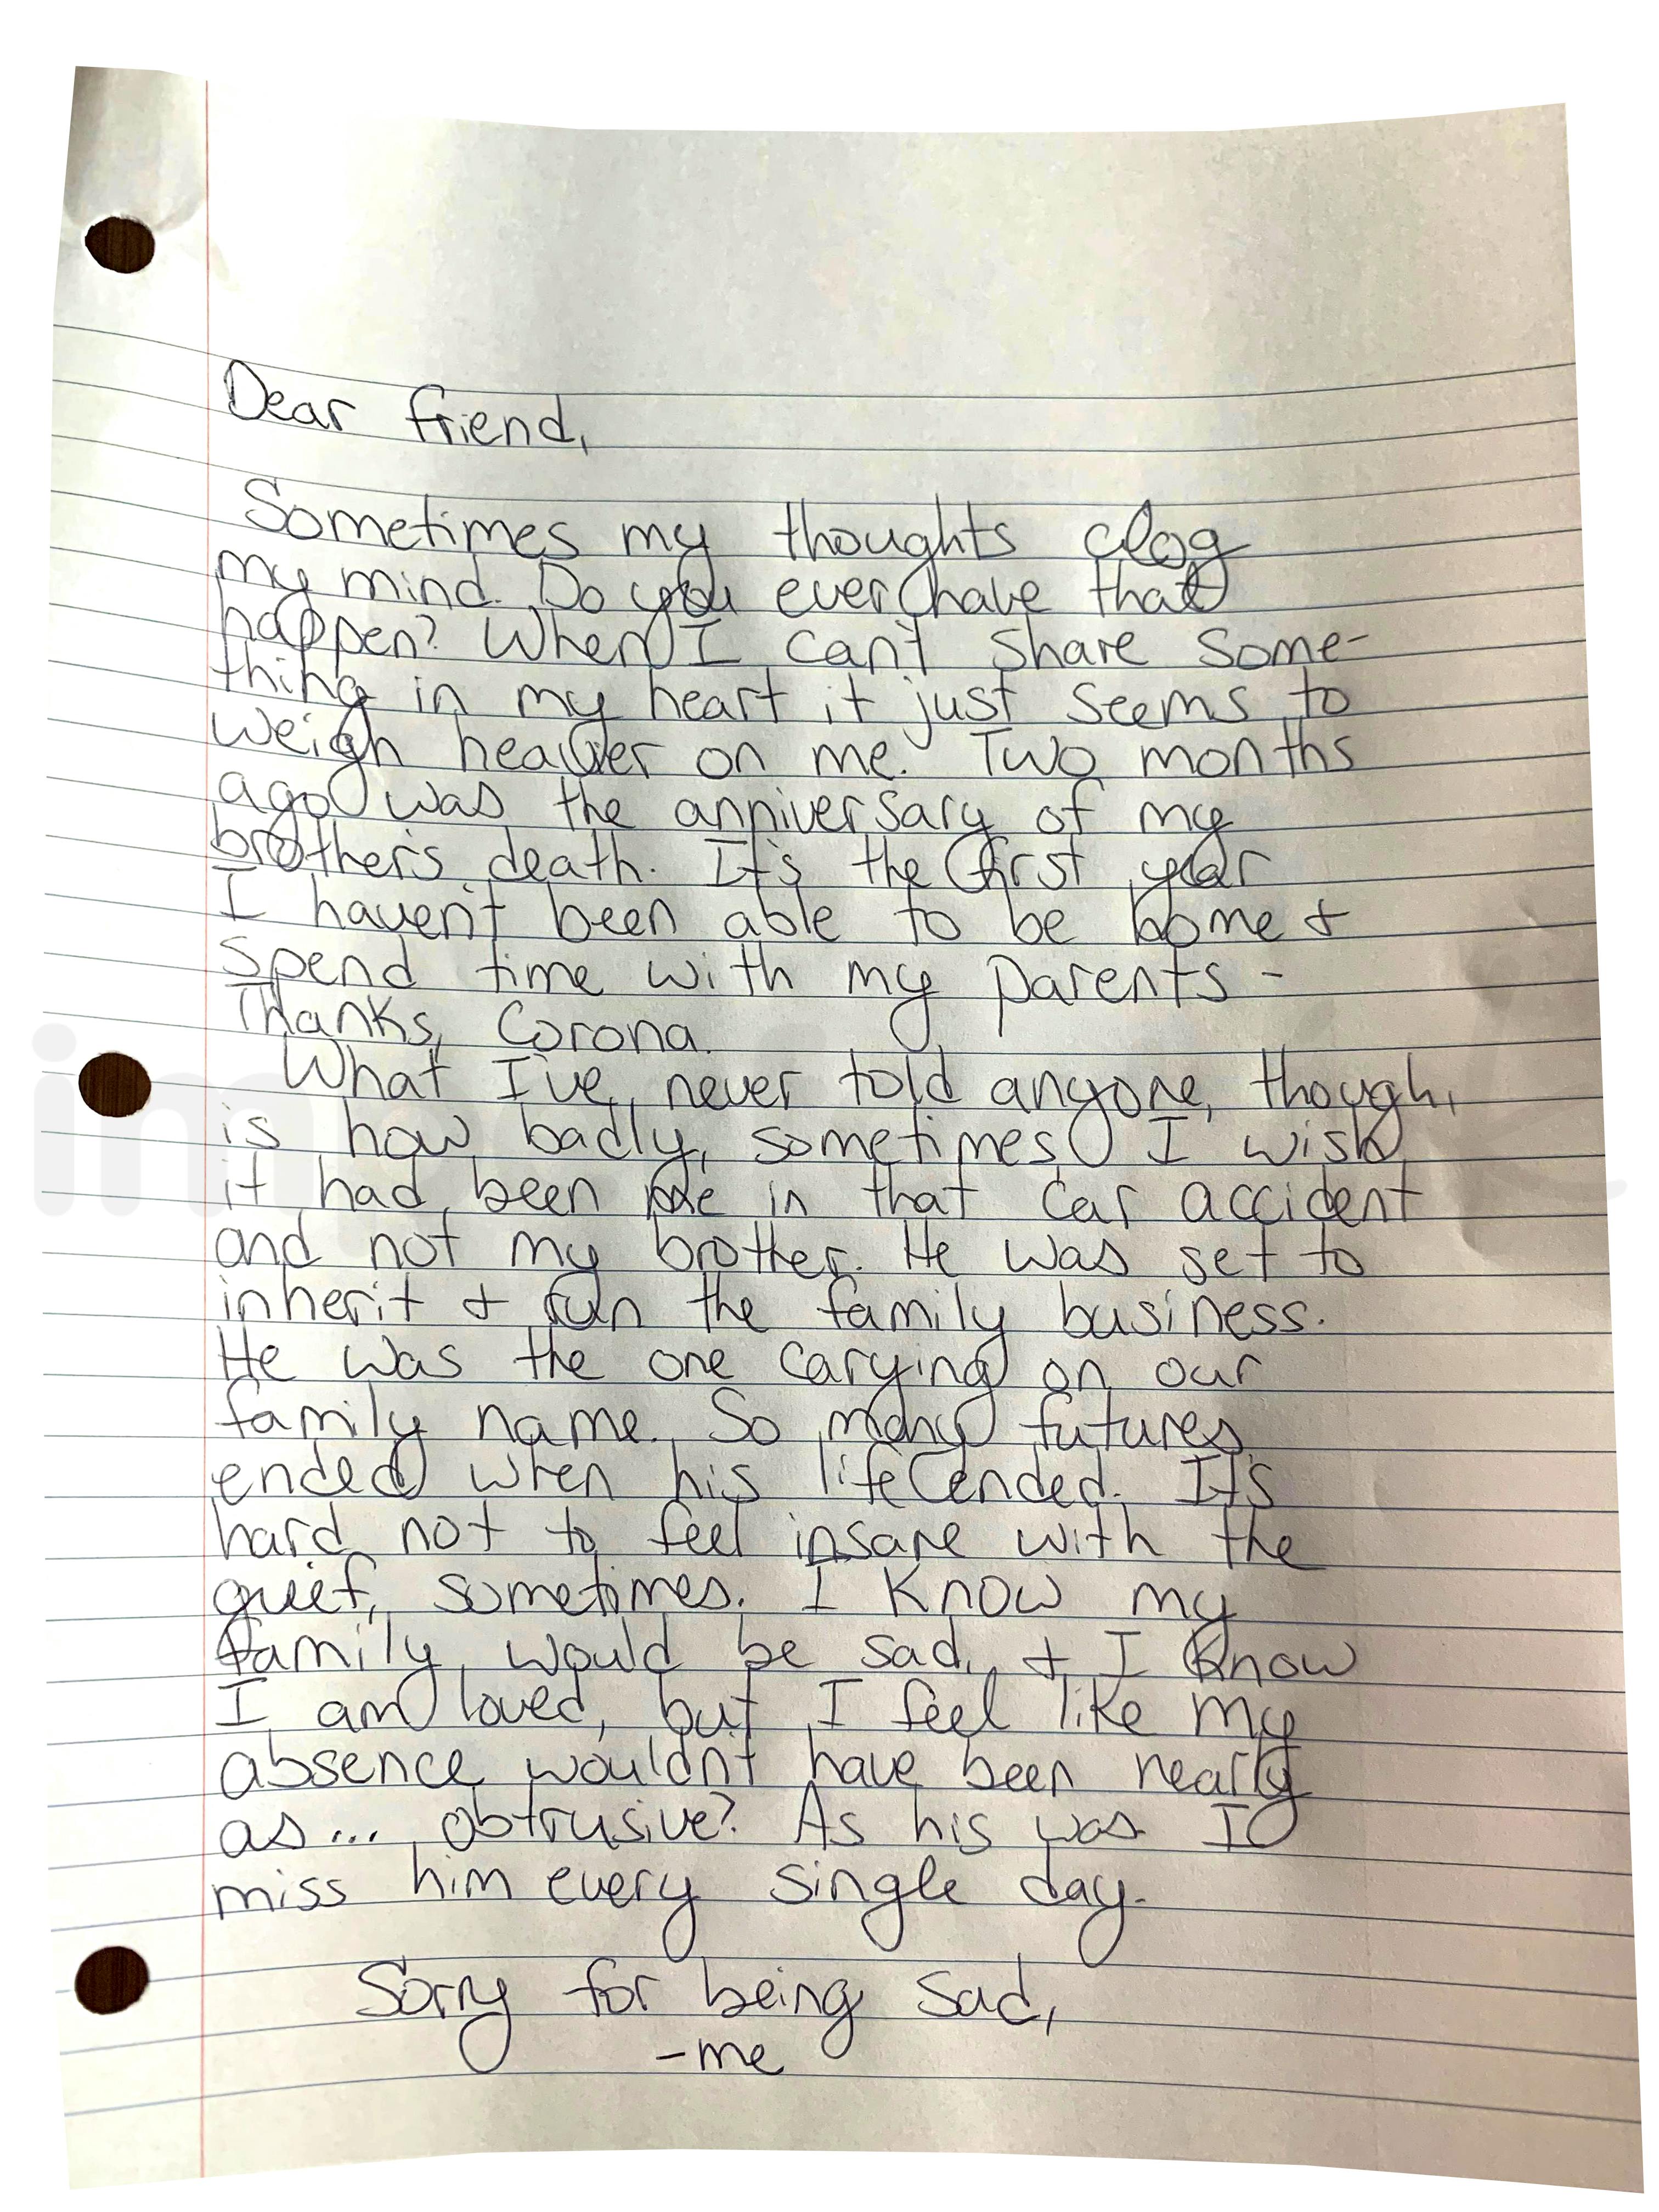 Dear friend,
Sometimes my thoughts clog
my mind. Do you ever have that
happen? When I can't share some-
thing in my heart it just seems to
weigh heavier on me. Two months
ago was the anniversary of my
brother's death. It's the first year
I haven't been able to be home &
spend time with my parents -
Thanks, Corona.
What I've never told anyone, though,
is how badly, sometimes, I wish
it had been me in that car accident
and not my brother. He was set to
inherit & run the family business.
He was the one carying on our
family name. So many futures
ended when his life ended. It's
hard not to feel insane with the
grief, sometimes. I know my
family would be sad, & I know
I am loved, but I feel like my
absence wouldn't have been nearly
as... obtrusive? As his was. I
miss him every single day.
Sorry for being sad,
-me